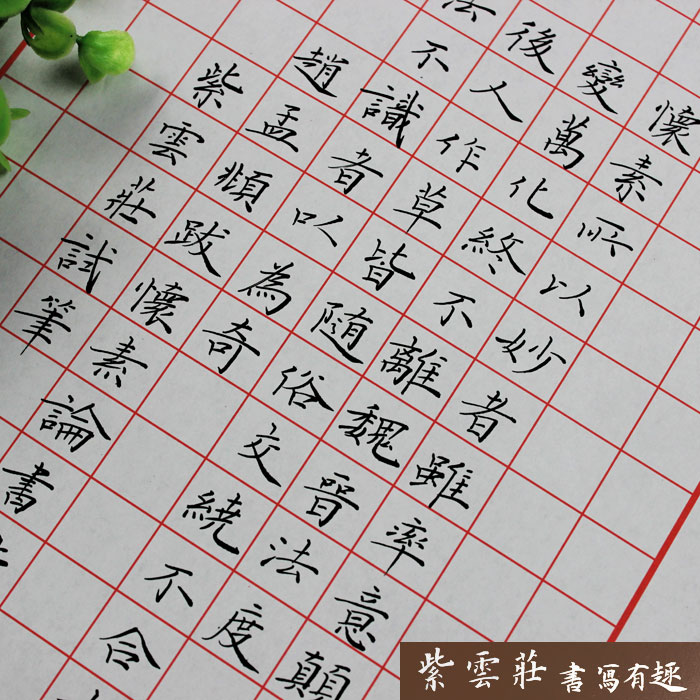 懷素所以妙者雖率意顛
變萬化終不離魏晉法度
後人作草皆随俗交繞不合
法不識者以為奇
趙孟頫跋懷素論書
紫雲莊試筆
紫雲莊 書寫有趣